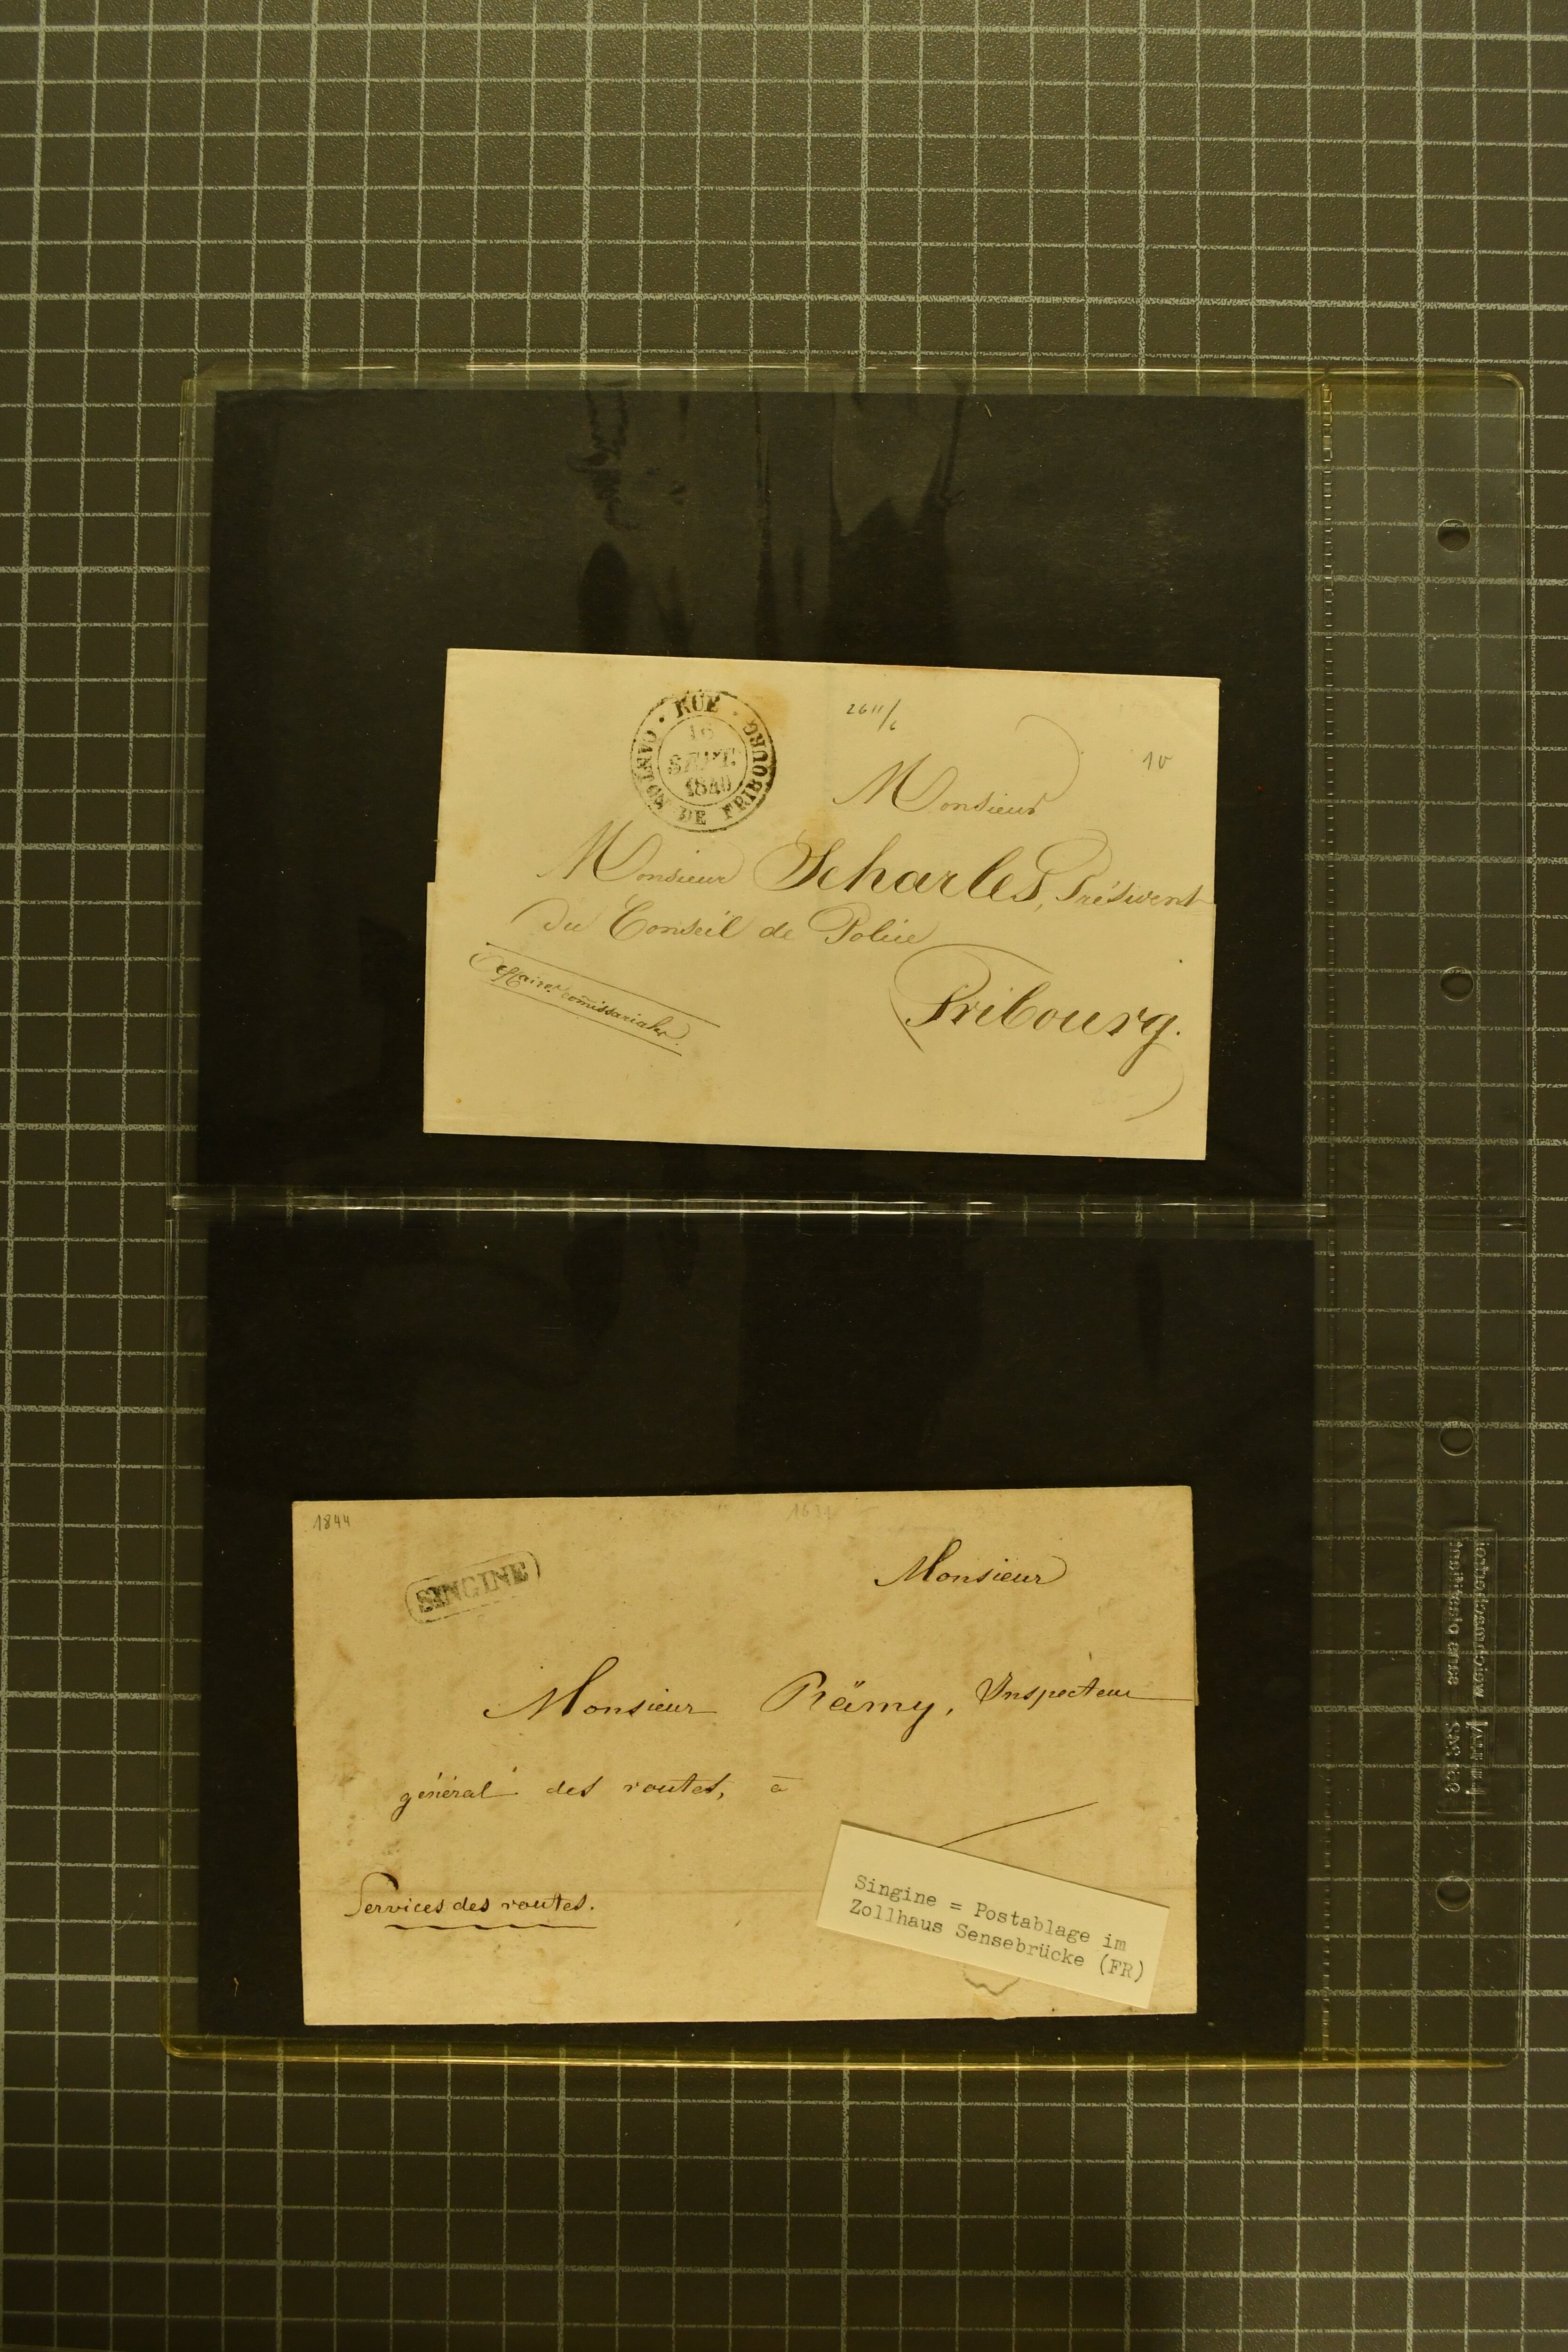 RUE
CANTON DE FRIBOURG
16
SEPT.
1840
2611/6
10
Monsieur
Monsieur Scharles, Président
du Conseil de Police
Affaires comissariales.
Fribourg.
1844
SINGINE
Monsieur
Monsieur Rämy, Inspecteur
général des routes, à
Services des routes.
Singine = Postablage im
Zollhaus Sensebrücke (FR)